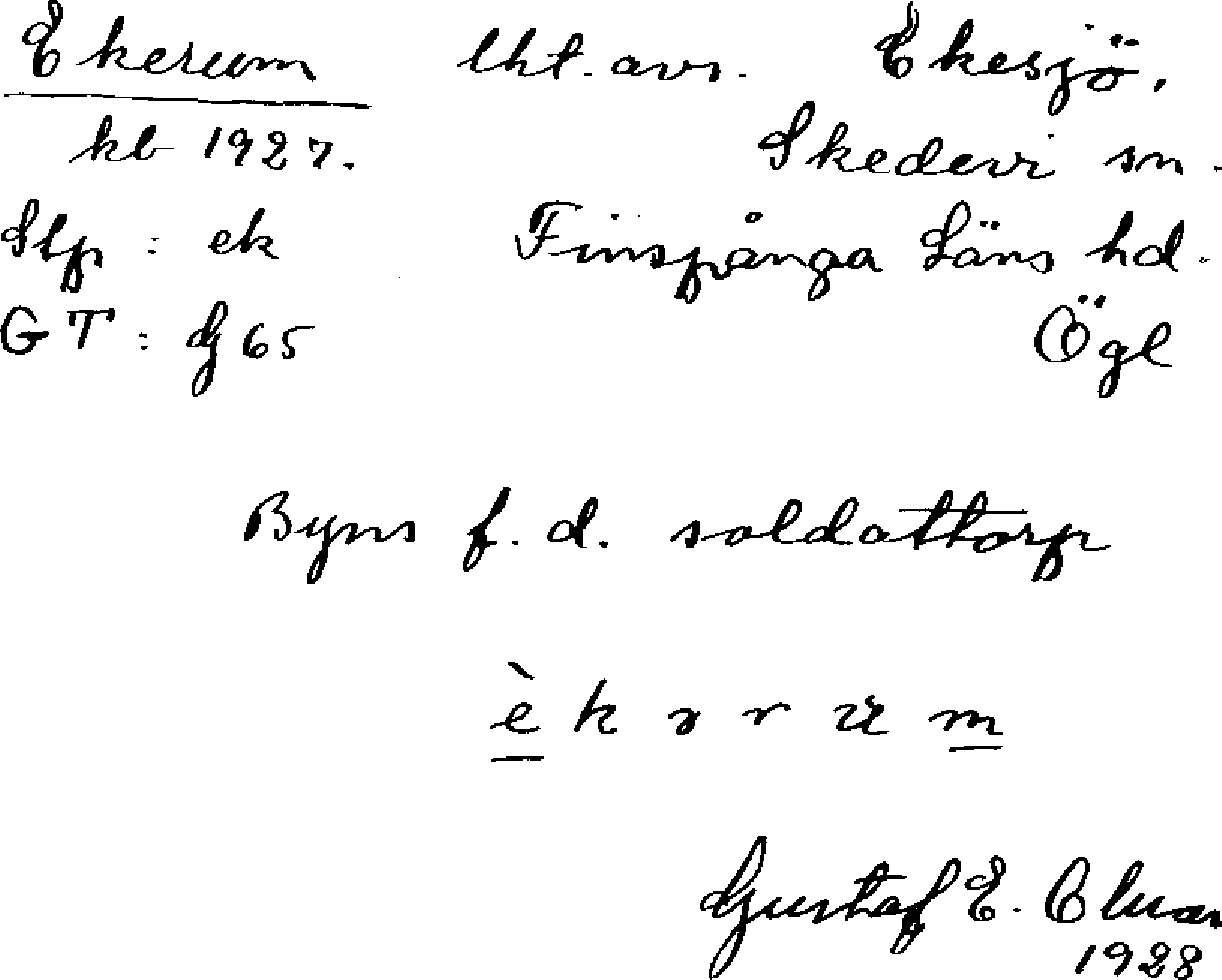 Ekerum lht. avs. Ekesjö,
kb 1927. Skedevi sn.
Slp : ek Finspånga Läns hd.
GT : G 65 Ögl
Byns f. d. soldattorp
Gustaf E.
1928